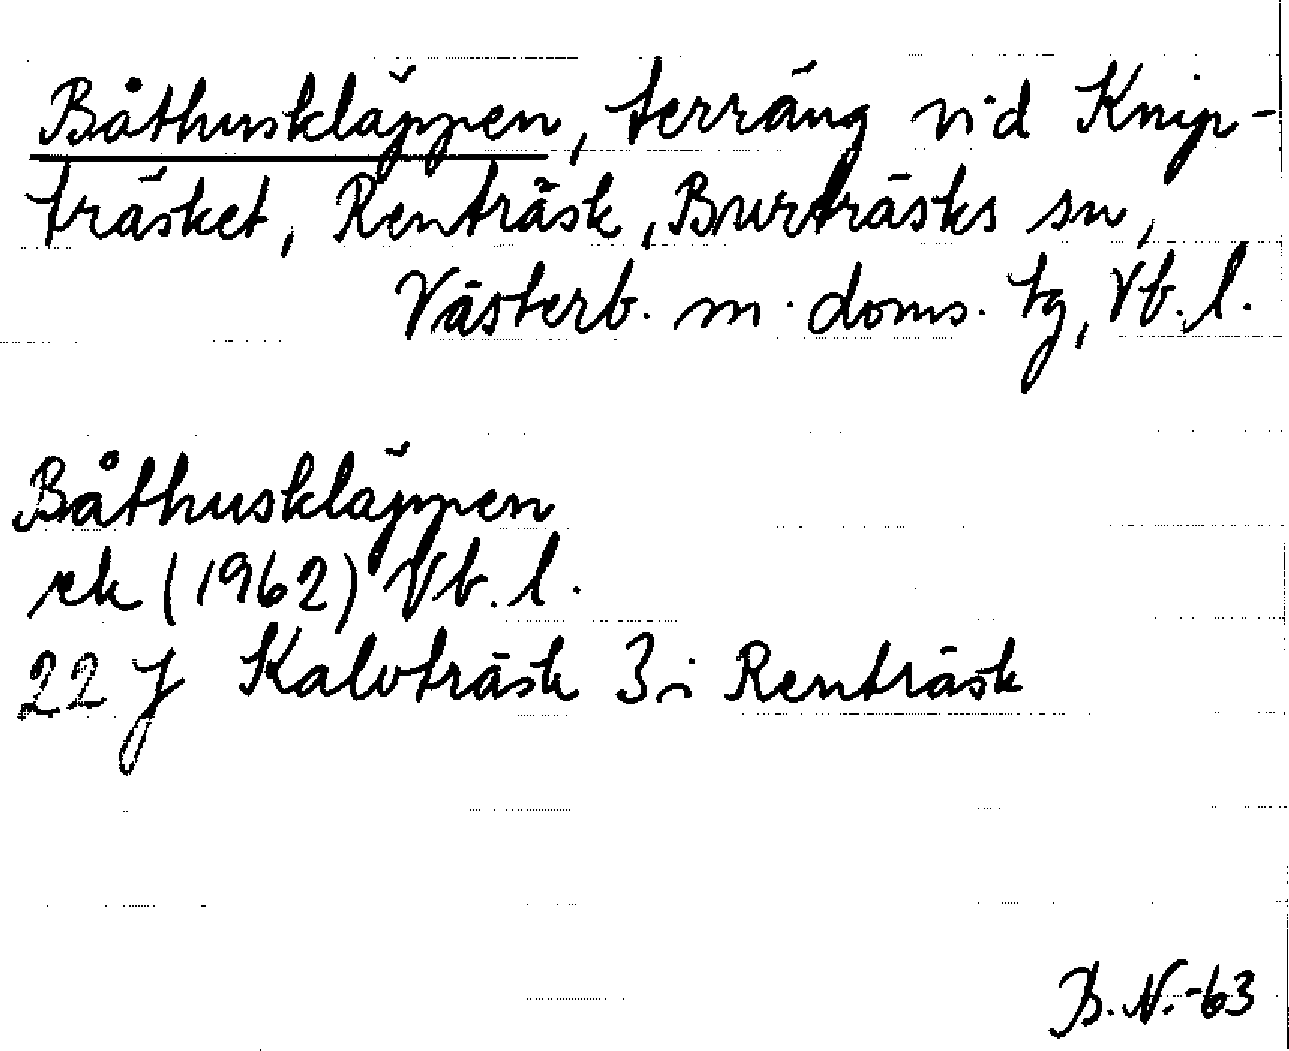 Båthuskläppen, terräng vid Knip-
träsket, Renträsk, Burträsks sn,
Västerb. m. doms. tg, Vb. l.
Båthuskläppen
ek (1962) Vb. l.
22 J Kalvträsk 3 i Renträsk
B. N. -63